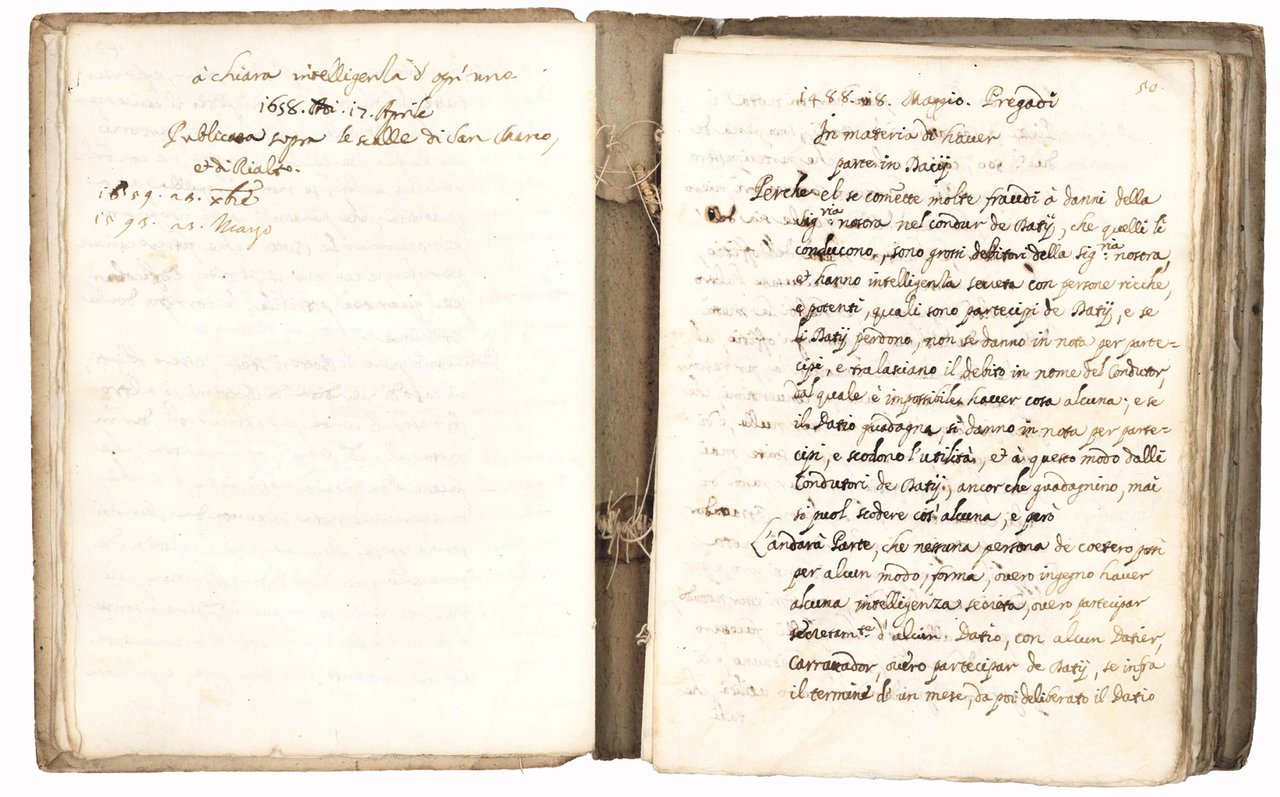 à chiara intelligenza d'ogn'uno
1658. Adi. 17. Aprile
Publicata sopra le scalle di San Marco,
et di Rialto.
1559. 23. xbre
1593. 23. Mayo
50.
1488. 18. Maggio. Pregadi
In materia di haver
parte in Datij
Perche el se comette molte fraudi à danni della
Sig:ria nostra nel condur de Datij, che quelli li
conducono, sono grossi debitori della Sig:ria nostra,
et hanno intelligenza secreta con persone ricche,
e potenti, quali sono partecipi de Datij, e se
li Datij perdono, non se danno in nota per parte=
cipi, e tralasciano il debito in nome del Condutor,
dal quale è impossibile haver cosa alcuna; e se
il Datio guadagna, si danno in nota per parte=
cipi, e scodono l'utilità, et à questo modo dalli
Condutori de Datij, ancor che guadagnino, mai
si puol scodere cos'alcuna, e però
L'andarà Parte, che nessuna persona de coetero possi
per alcun modo, forma, overo ingegno haver
alcuna intelligenza secreta, overo partecipar
secretam:te d'alcun Datio, con alcun Datier,
Carratador, overo partecipar de Datij, se infra
il termine d'un mese, da poi deliberato il Datio